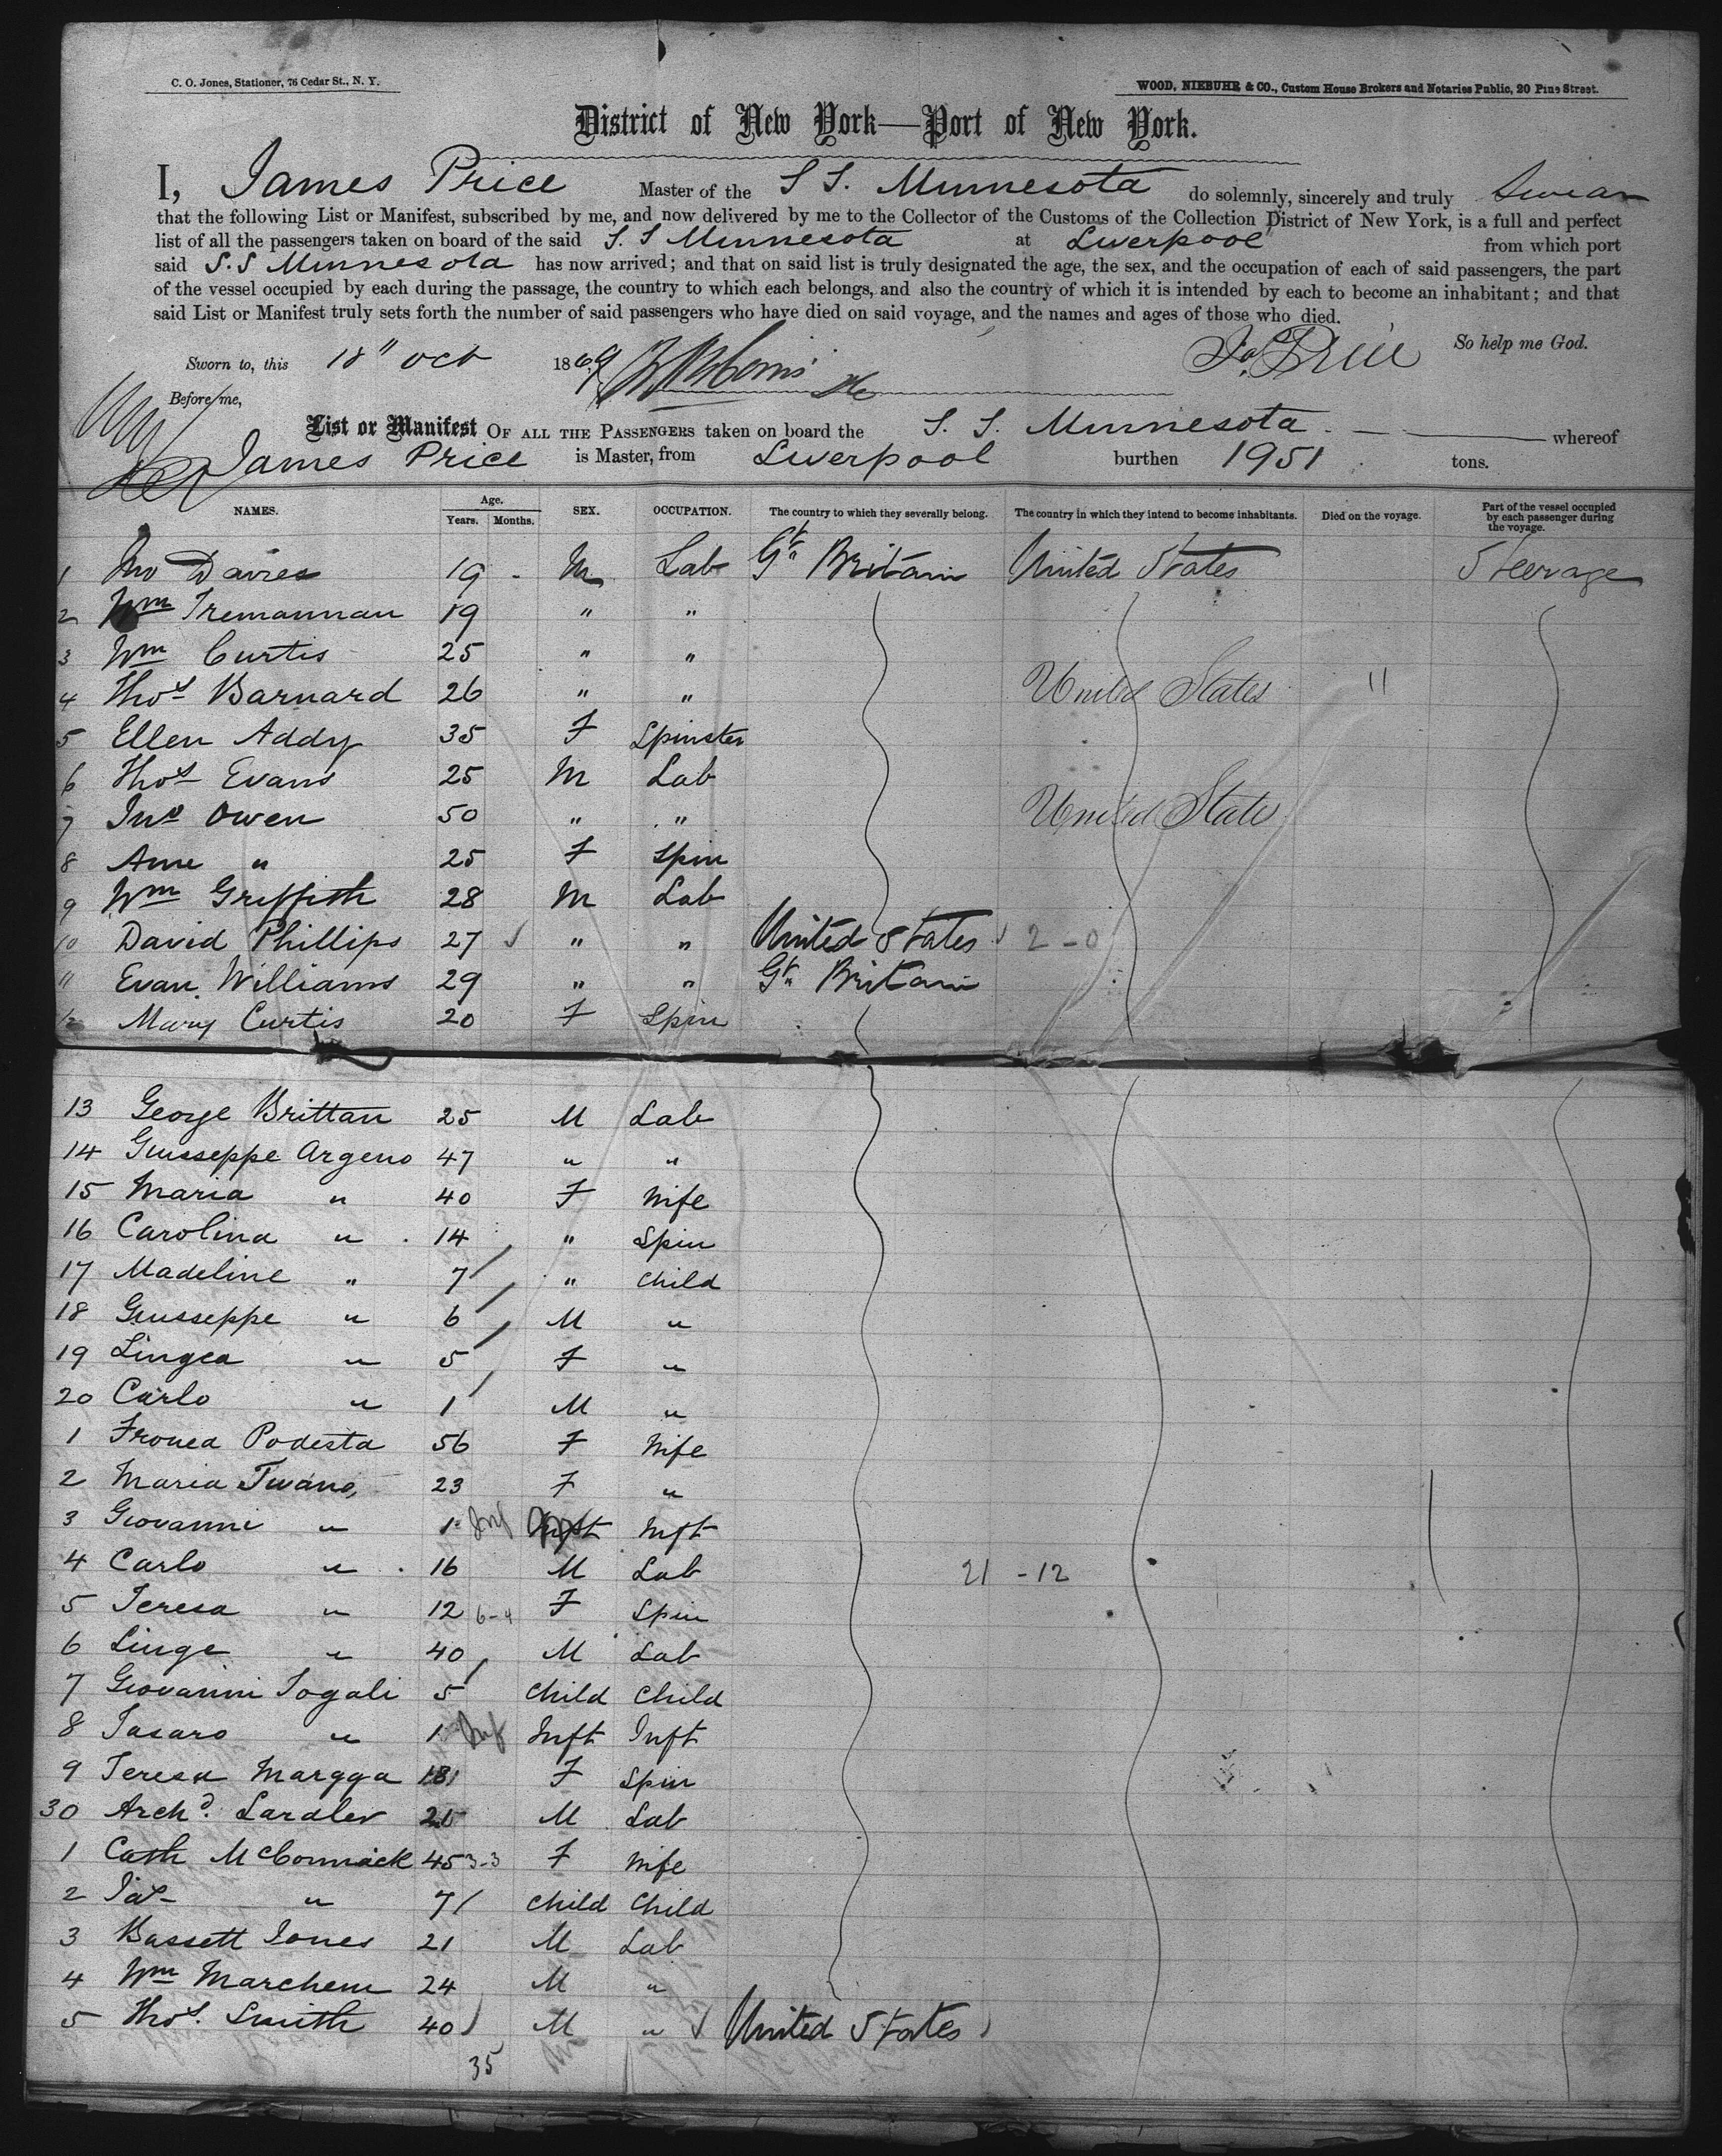 C. O. Jones, Stationer, 76 Cedar St., N. Y.
WOOD, NIEBUHR & CO., Custom House Brokers and Notaries Public, 20 Pine Street.
District of New York—Port of New York.
I, James Price Master of the S S. Minnesota do solemnly, sincerely and truly Swear
that the following List or Manifest, subscribed by me, and now delivered by me to the Collector of the Customs of the Collection District of New York, is a full and perfect
list of all the passengers taken on board of the said S. S Minnesota at Liverpool from which port
said S. S Minnesota has now arrived; and that on said list is truly designated the age, the sex, and the occupation of each of said passengers, the part
of the vessel occupied by each during the passage, the country to which each belongs, and also the country of which it is intended by each to become an inhabitant; and that
said List or Manifest truly sets forth the number of said passengers who have died on said voyage, and the names and ages of those who died.
So help me God.
Sworn to, this 18" Oct 1869 Jas Price
Before me,
List or Manifest OF ALL THE PASSENGERS taken on board the S. S. Minnesota whereof
James Price is Master, from Liverpool burthen 1951 tons.
NAMES. Age. Years. Months. SEX. OCCUPATION. The country to which they severally belong. The country in which they intend to become inhabitants. Died on the voyage. Part of the vessel occupied by each passenger during the voyage.
1 Jno Davies 19 - M Lab Gt Britain United States Steerage
2 Wm Tremannan 19 " "
3 Wm Curtis 25 " "
4 Thos Barnard 26 " " United States 11
5 Ellen Addy 35 F Spinster
6 Thos Evans 25 M Lab
7 Jno Owen 50 " " United State
8 Ame " 25 F Spin
9 Wm Griffith 28 M Lab
10 David Phillips 27 " " United States 2 - 0
11 Evan Williams 29 " " Gt Britain
12 Mary Curtis 20 F Spin
13 George Brittan 25 M Lab
14 Giusseppe Argeno 47 " "
15 Maria " 40 F Wife
16 Carolina " 14 " Spin
17 Madeline " 7 " Child
18 Giusseppe " 6 M "
19 Lingea " 5 F "
20 Carlo " 1 M "
1 Podesta 56 F Wife
2 Maria 23 F "
3 Giovanni " 1 Inf Inft
4 Carlo " 16 M Lab 21 - 12
5 Teresa " 12 6-4 F Spin
6 Linge " 40 M Lab
7 Giovanni Togali 5 Child Child
8 " 1 Inf Inft Inft
9 Teresa Margga 18 F Spin
30 Archd. Lardler M Lab
1 Cath McCormack 45 3-3 F Wife
2 Jas " 7 Child Child
3 Bassett Jones 21 M Lab
4 Wm Marchem 24 M "
5 Thos. Smith 40 M " United States
35